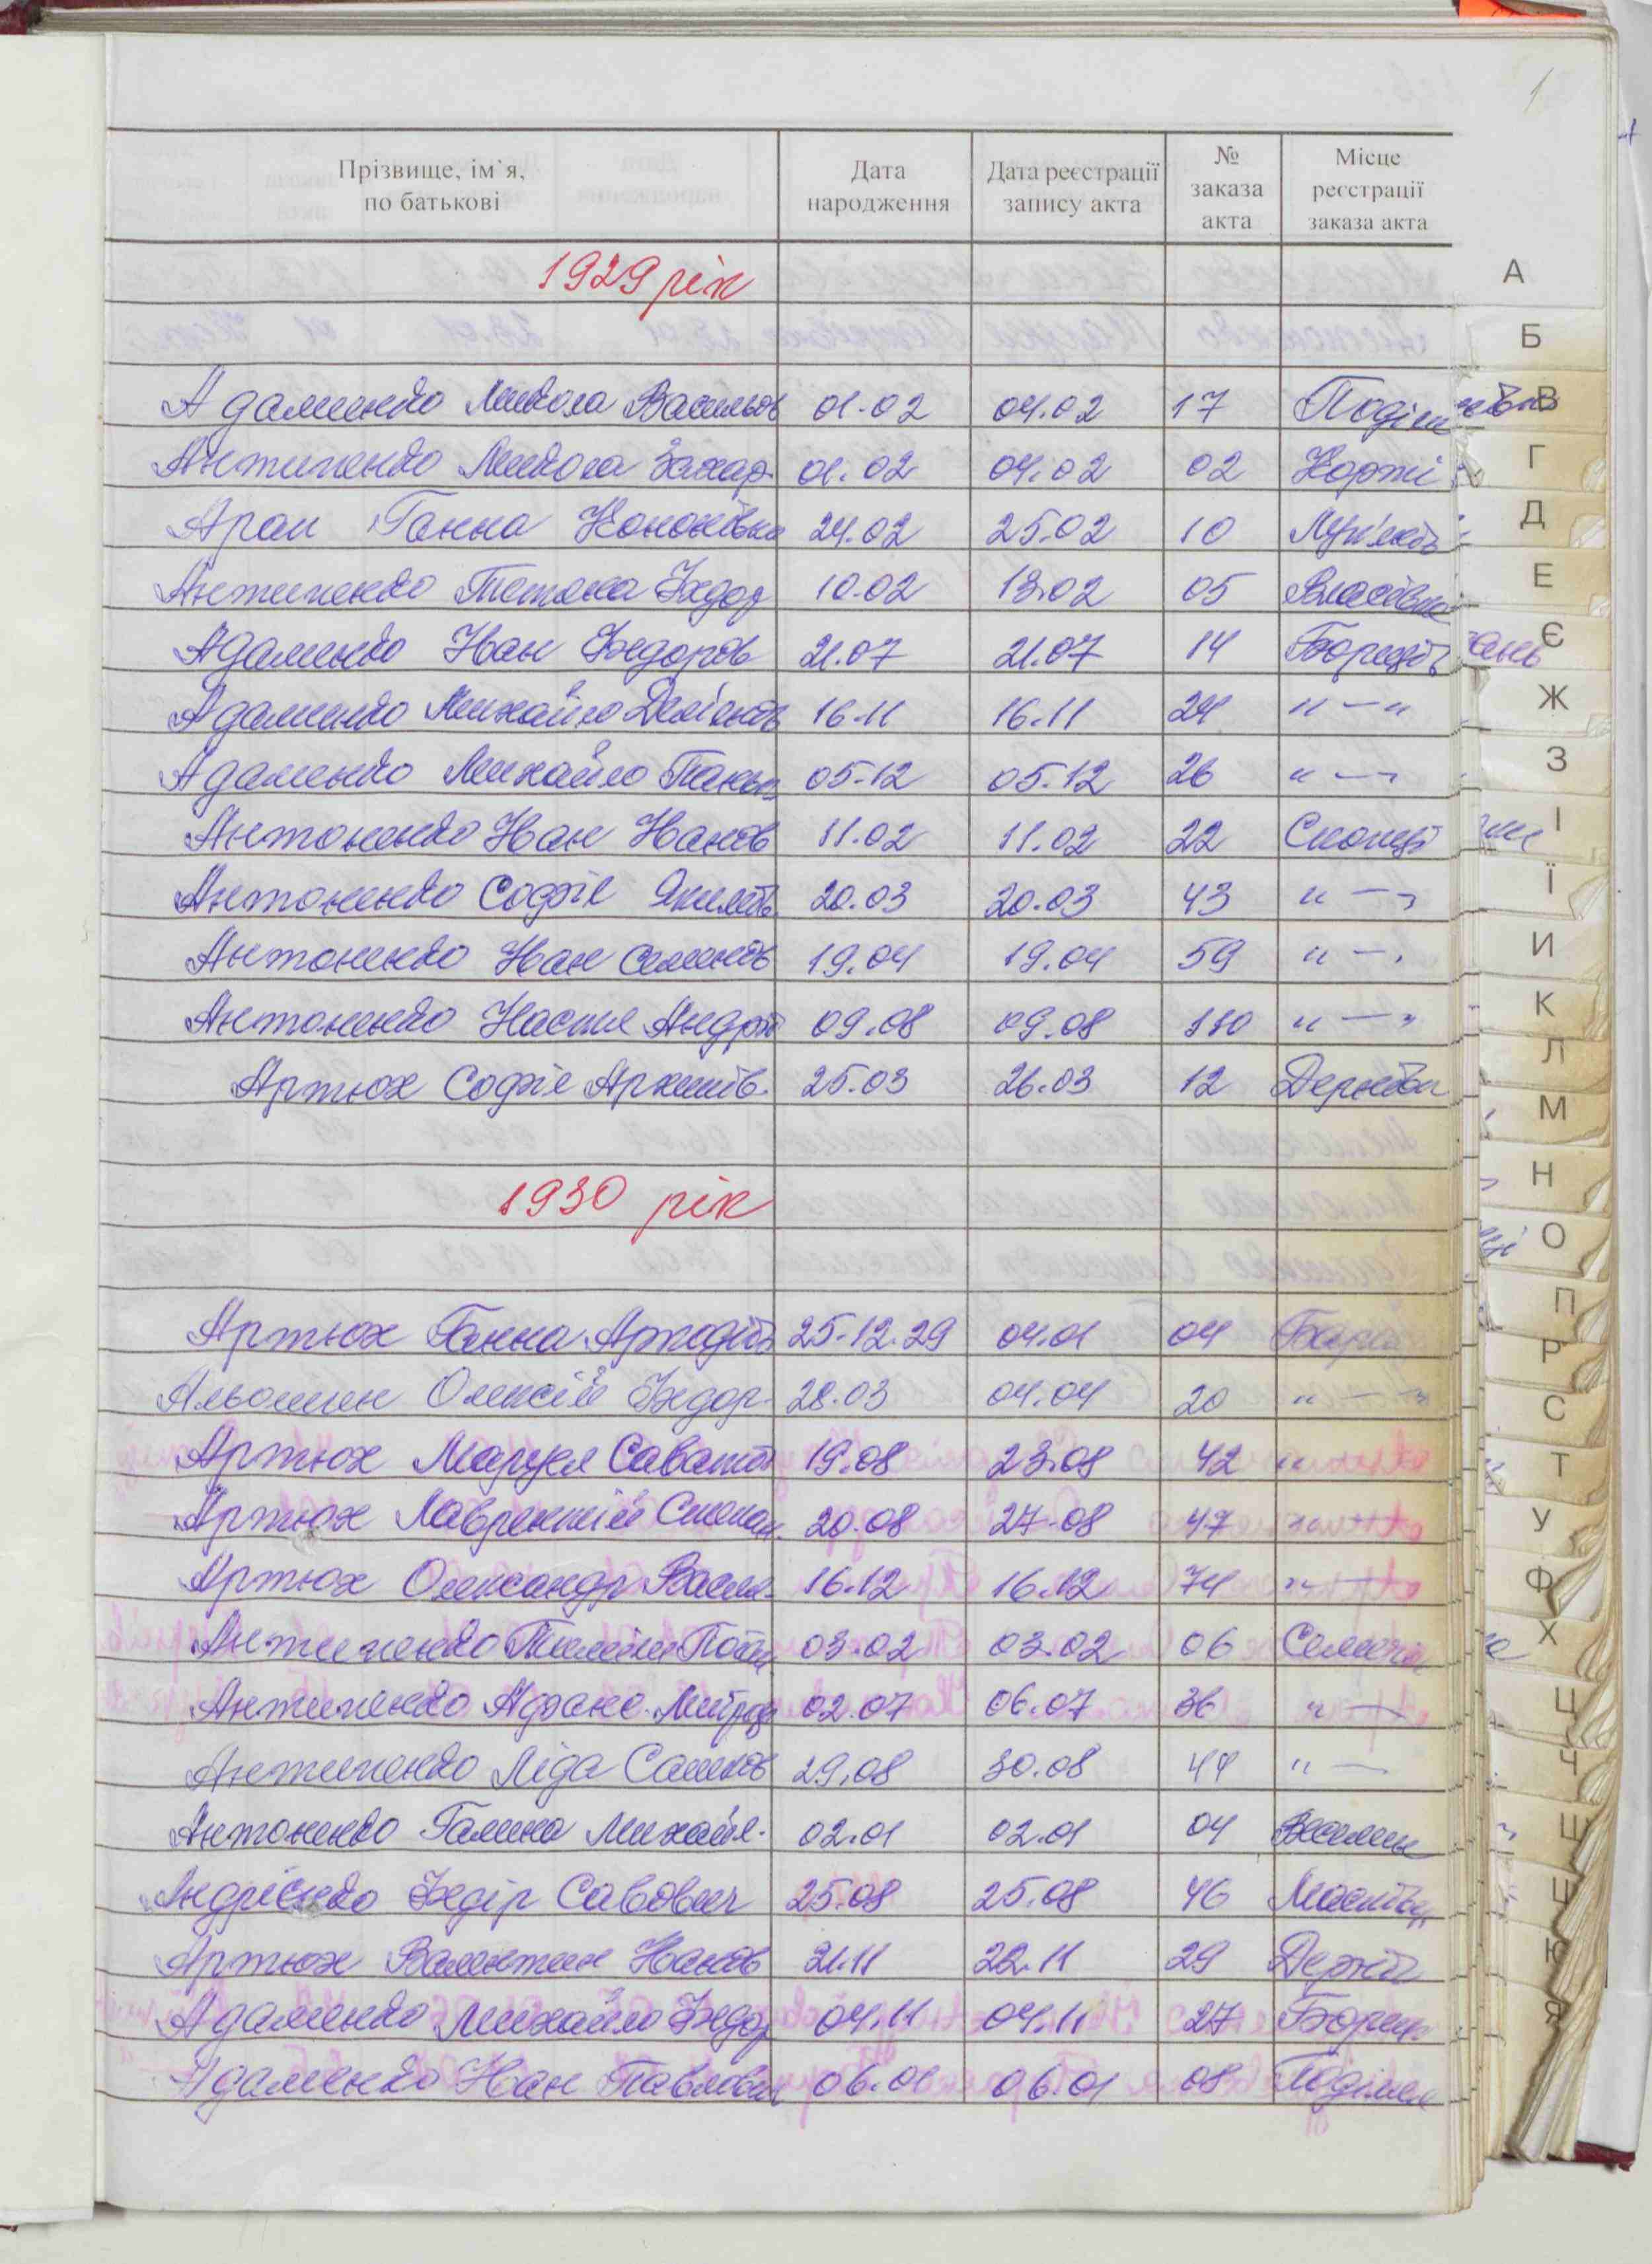 1
Прізвище, ім`я, по батькові Дата народження Дата реєстрації запису акта № заказа акта Місце реєстрації заказа акта
1929 рік
Адаменко Микола Васильов 01.02 04.02 17 Поділ
Антипенко Микола Захар. 01.02 04.02 02 Коржі
Арап Ганна Кононівна 24.02 25.02 10 Лук'янів
Антипенко Тетяна Федор 10.02 13.02 05 Власівка
Адаменко Іван Федоров 21.07 21.07 14 Борщів
Адаменко Михайло Дем'янов 16.11 16.11 24 " — "
Адаменко Михайло 05.12 05.12 26 " — "
Антоненко Іван Іванов 11.02 11.02 22 Скопці
Антоненко Софія Якимів. 20.03 20.03 43 " — "
Антоненко Іван Семенов 19.04 19.04 59 " — "
Антоненко Настя Андрії 09.08 09.08 110 " — "
Артюх Софія Архипів. 25.03 26.03 12
1930 рік
Артюх Ганна Аркадіїв 25.12.29 04.01 04 Бари
Альошин Олексій Федор. 28.03 04.04 20 " — "
Артюх Маруся Саватії 19.08 23.08 42 "
Артюх Лаврентій Степан 20.08 27.08 47 " —
Артюх Олександр Васил. 16.12 16.12 74 " —
Антипенко 03.02 03.02 06 Семені
Антипенко Афанс. Митроф 02.07 06.07 36 " —
Антипенко Ліда Самков 29.08 30.08 44 " —
Антоненко Галина Михайл. 02.01 02.01 04
Андрієнко Федір Савович 25.08 25.08 46
Артюх Валентин Іванов 21.11 22.11 29
Адаменко Михайло Федор 04.11 04.11 27 Борщ
Адаменко Іван Павлович 06.01 06.01 08
А
Б
В
Г
Д
Е
Є
Ж
З
І
Ї
И
К
Л
М
Н
О
П
Р
С
Т
У
Ф
Х
Ц
Ч
Ш
Щ
Ю
Я